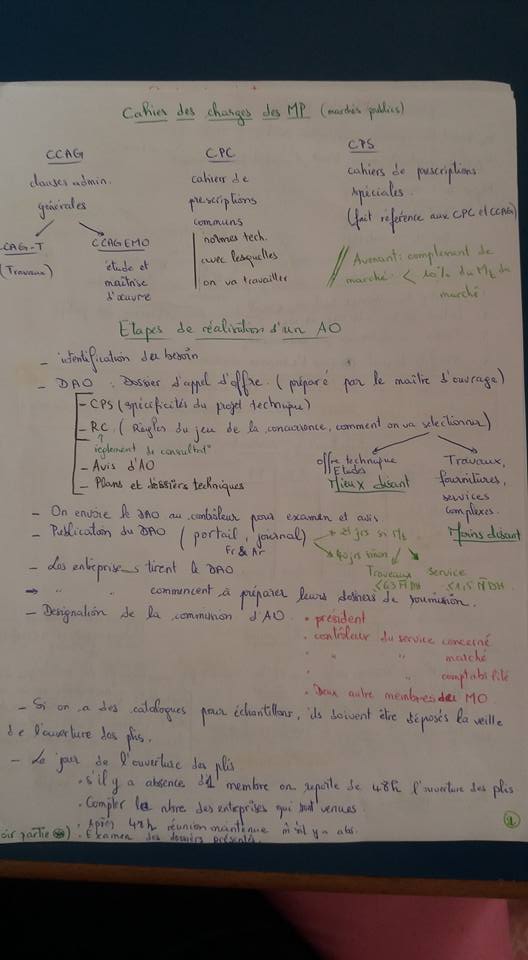 Cahier des charges des MP (marchés publics)
CCAG
clauses admin.
générales
CCAG-T
(Travaux)
CCAGEMO
étude et
maîtrise
d'œuvre
CPC
cahier de
prescriptions
communs
normes tech.
avec lesquelles
on va travailler
CPS
cahiers de prescriptions
spéciales.
(fait référence aux CPC et CCAG)
Avenant: complement de
marché. < 10% du Mt du
marché
Etapes de réalisation d'un AO
- identification du besoin
- DAO : Dossier d'appel d'offre. (préparé par le maître d'ouvrage)
- CPS (spécificités du projet technique)
- RC. (Règles du jeu de la concurrence, comment on va selectionner)
règlement de consultat°
- Avis d'AO
- Plans et dossiers techniques
offre technique
Etudes
Mieux disant
Travaux,
fournitures,
services
complexes.
Moins disant
- On envoie le DAO au contrôleur pour examen et avis.
- Publication du DAO (portail, journal)
Fr & Ar
21 jrs si Mt
40 jrs sinon
Travaux
service
- Les entreprises tirent le DAO
" " commencent à préparer leurs dossiers de soumission.
- Désignation de la commission d'AO
• président
• contrôleur du service concerné
" " marché
" " comptabilité
• Deux autre membres du MO.
- Si on a des catalogues pour échantillons, ils doivent être déposés la veille
de l'ouverture des plis.
- Le jour de l'ouverture des plis
• s'il y a absence d'1 membre on reporte de 48h l'ouverture des plis
• Compter le nbre des entreprises qui sont venues
• Après 48h réunion maintenue m̂ s'il y a abs.
oir partie ) • Examen des dossiers présentés.
1